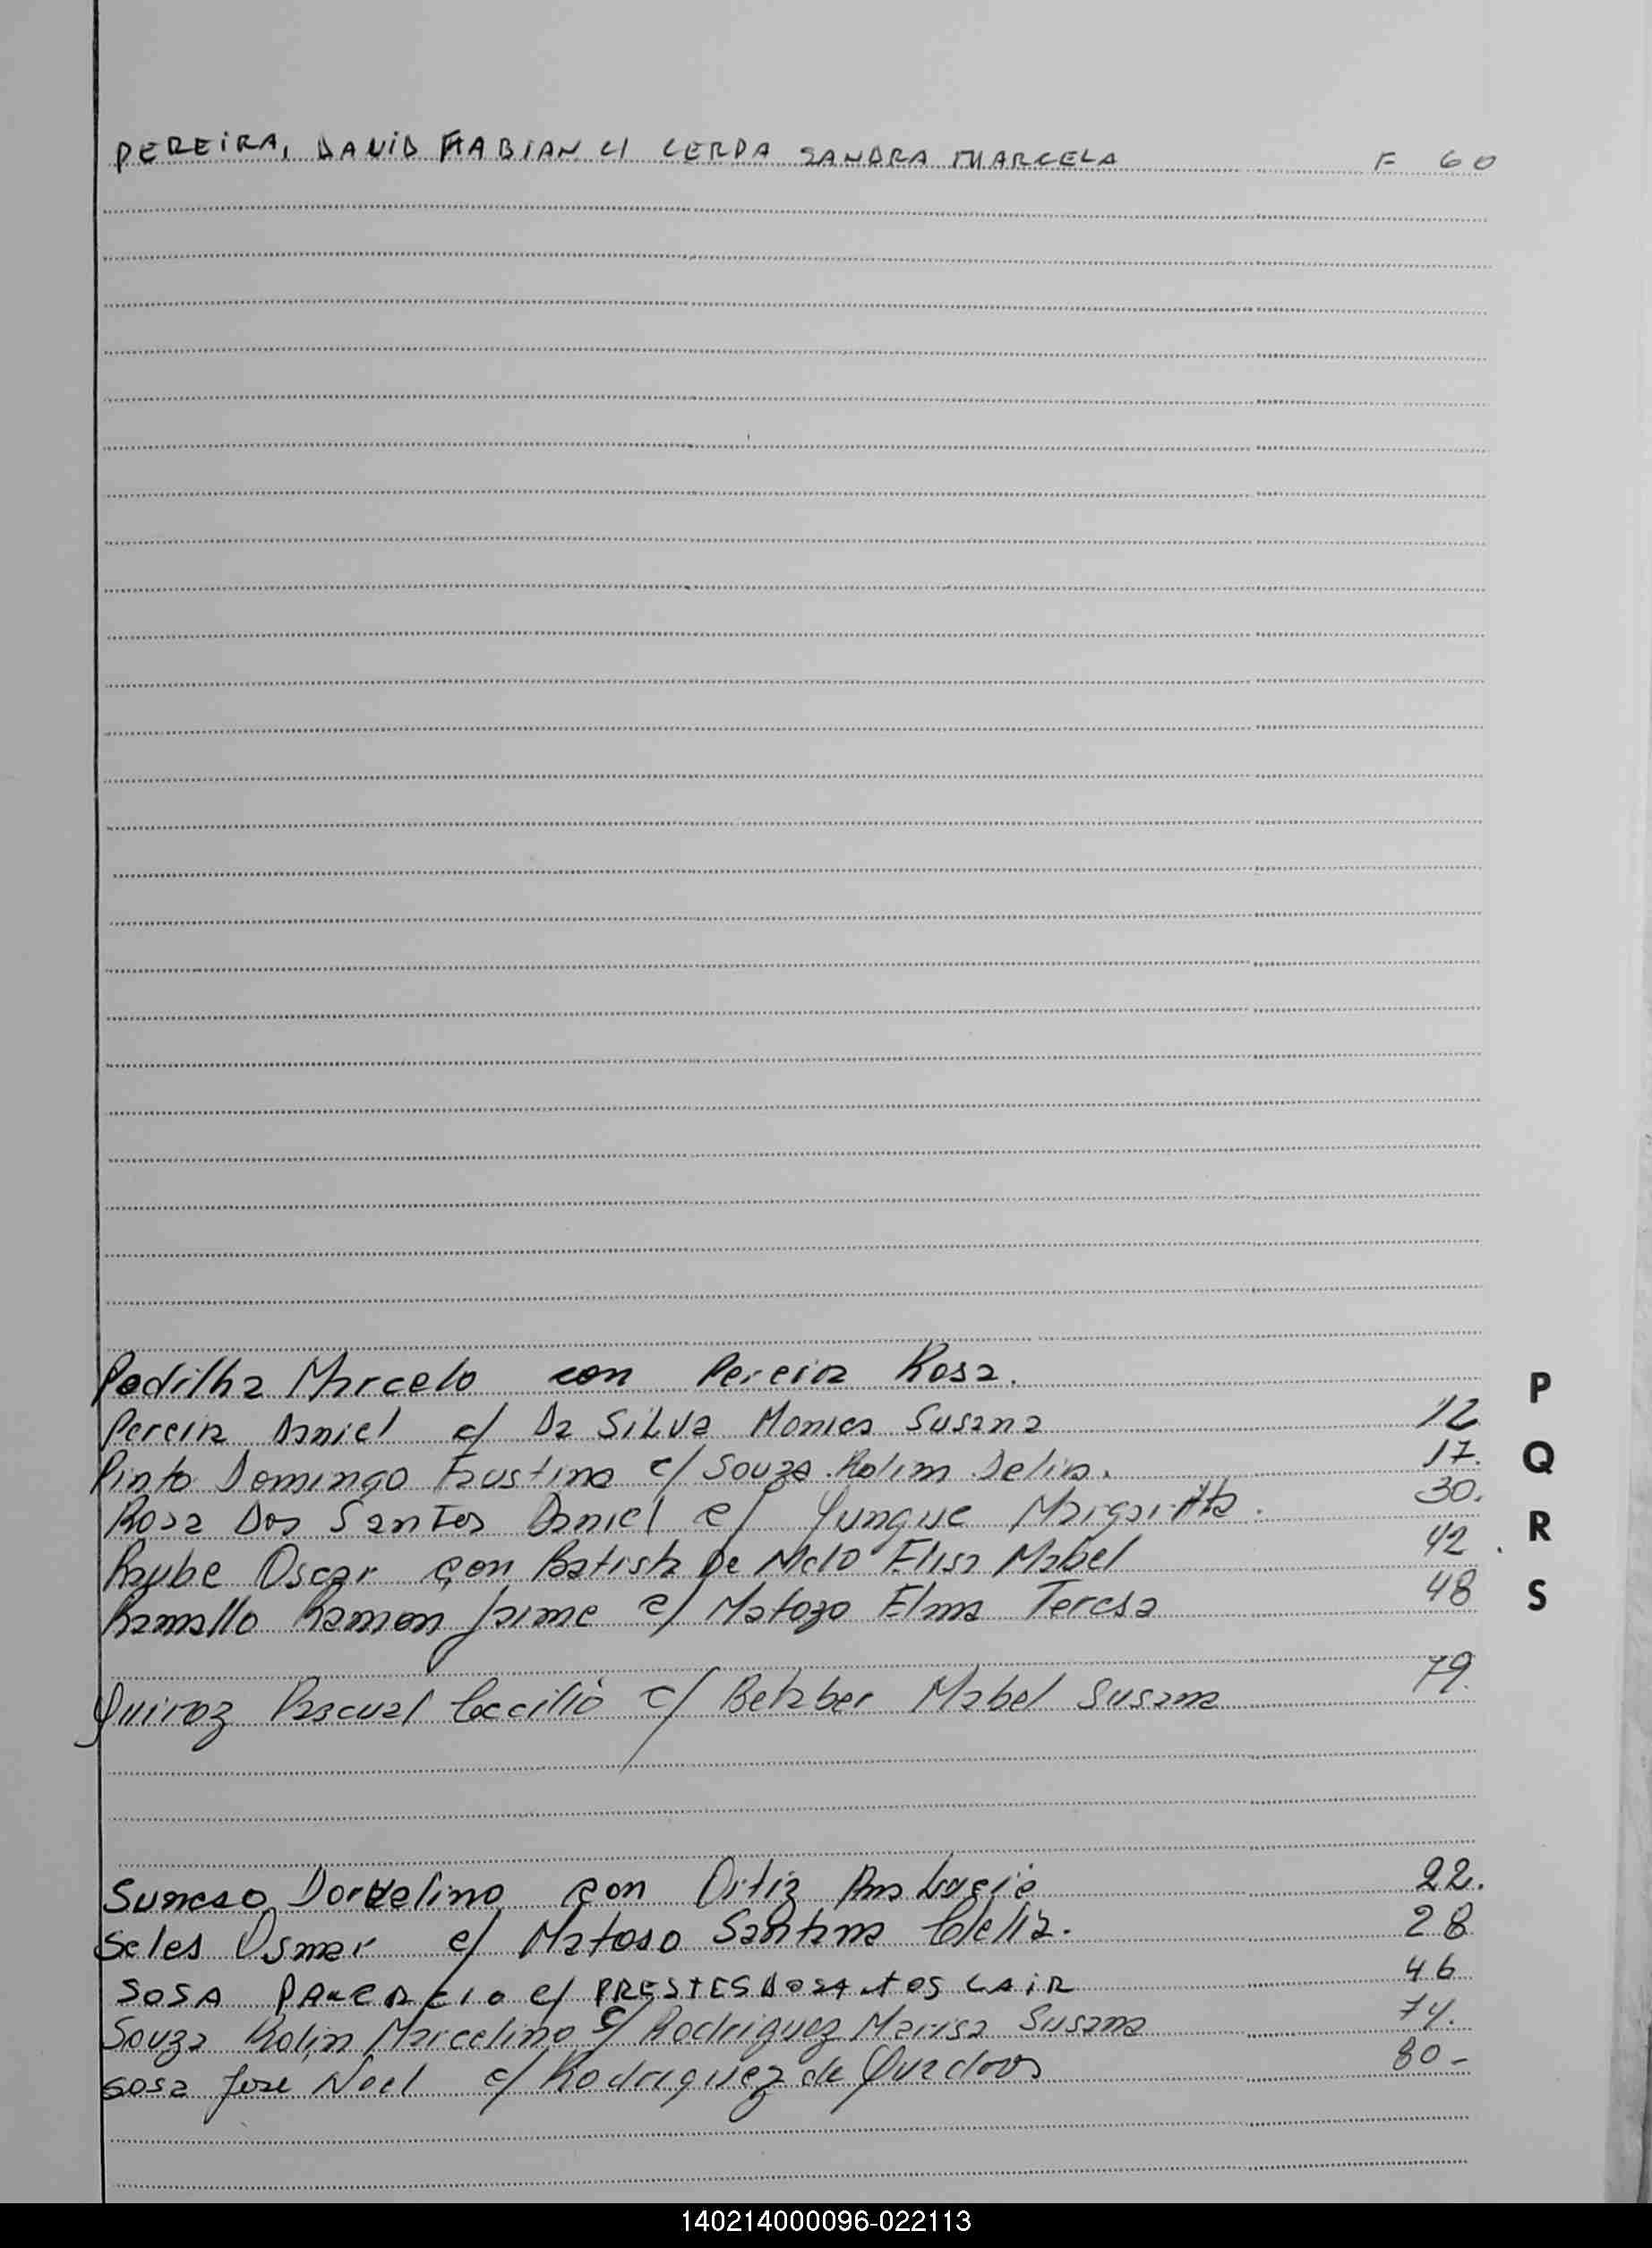 PEREIRA, DAVID FABIAN C/ CERDA SANDRA MARCELA F 60
Padilha Marcelo con Pereira Rosa.
Pereira Daniel c/ Da SiLva Monica Susana 12
Pinto Domingo Faustino c/ Souza Rolim Delia. 17.
Rosa Dos Santos Daniel c/ Yunque Margarita. 30.
Raube Oscar con Batista De Melo Elisa Mabel 42.
Ramallo Ramon Jaime c/ Matozo Elma Teresa 48
Quiroz Pascual Cecilio c/ Betaber Mabel Susana 79.
Dorvelino con Ortiz 22.
Seles Osmar c/ Matoso Santana Clelia. 28
SOSA c/ PRESTES DOSANTOS LAIR 46
Souza Rolin Marcelino c/ Rodriguez Marisa Susana 74.
Sosa Jose Noel c/ Rodriguez de 80-
P
Q
R
S
140214000096-022113